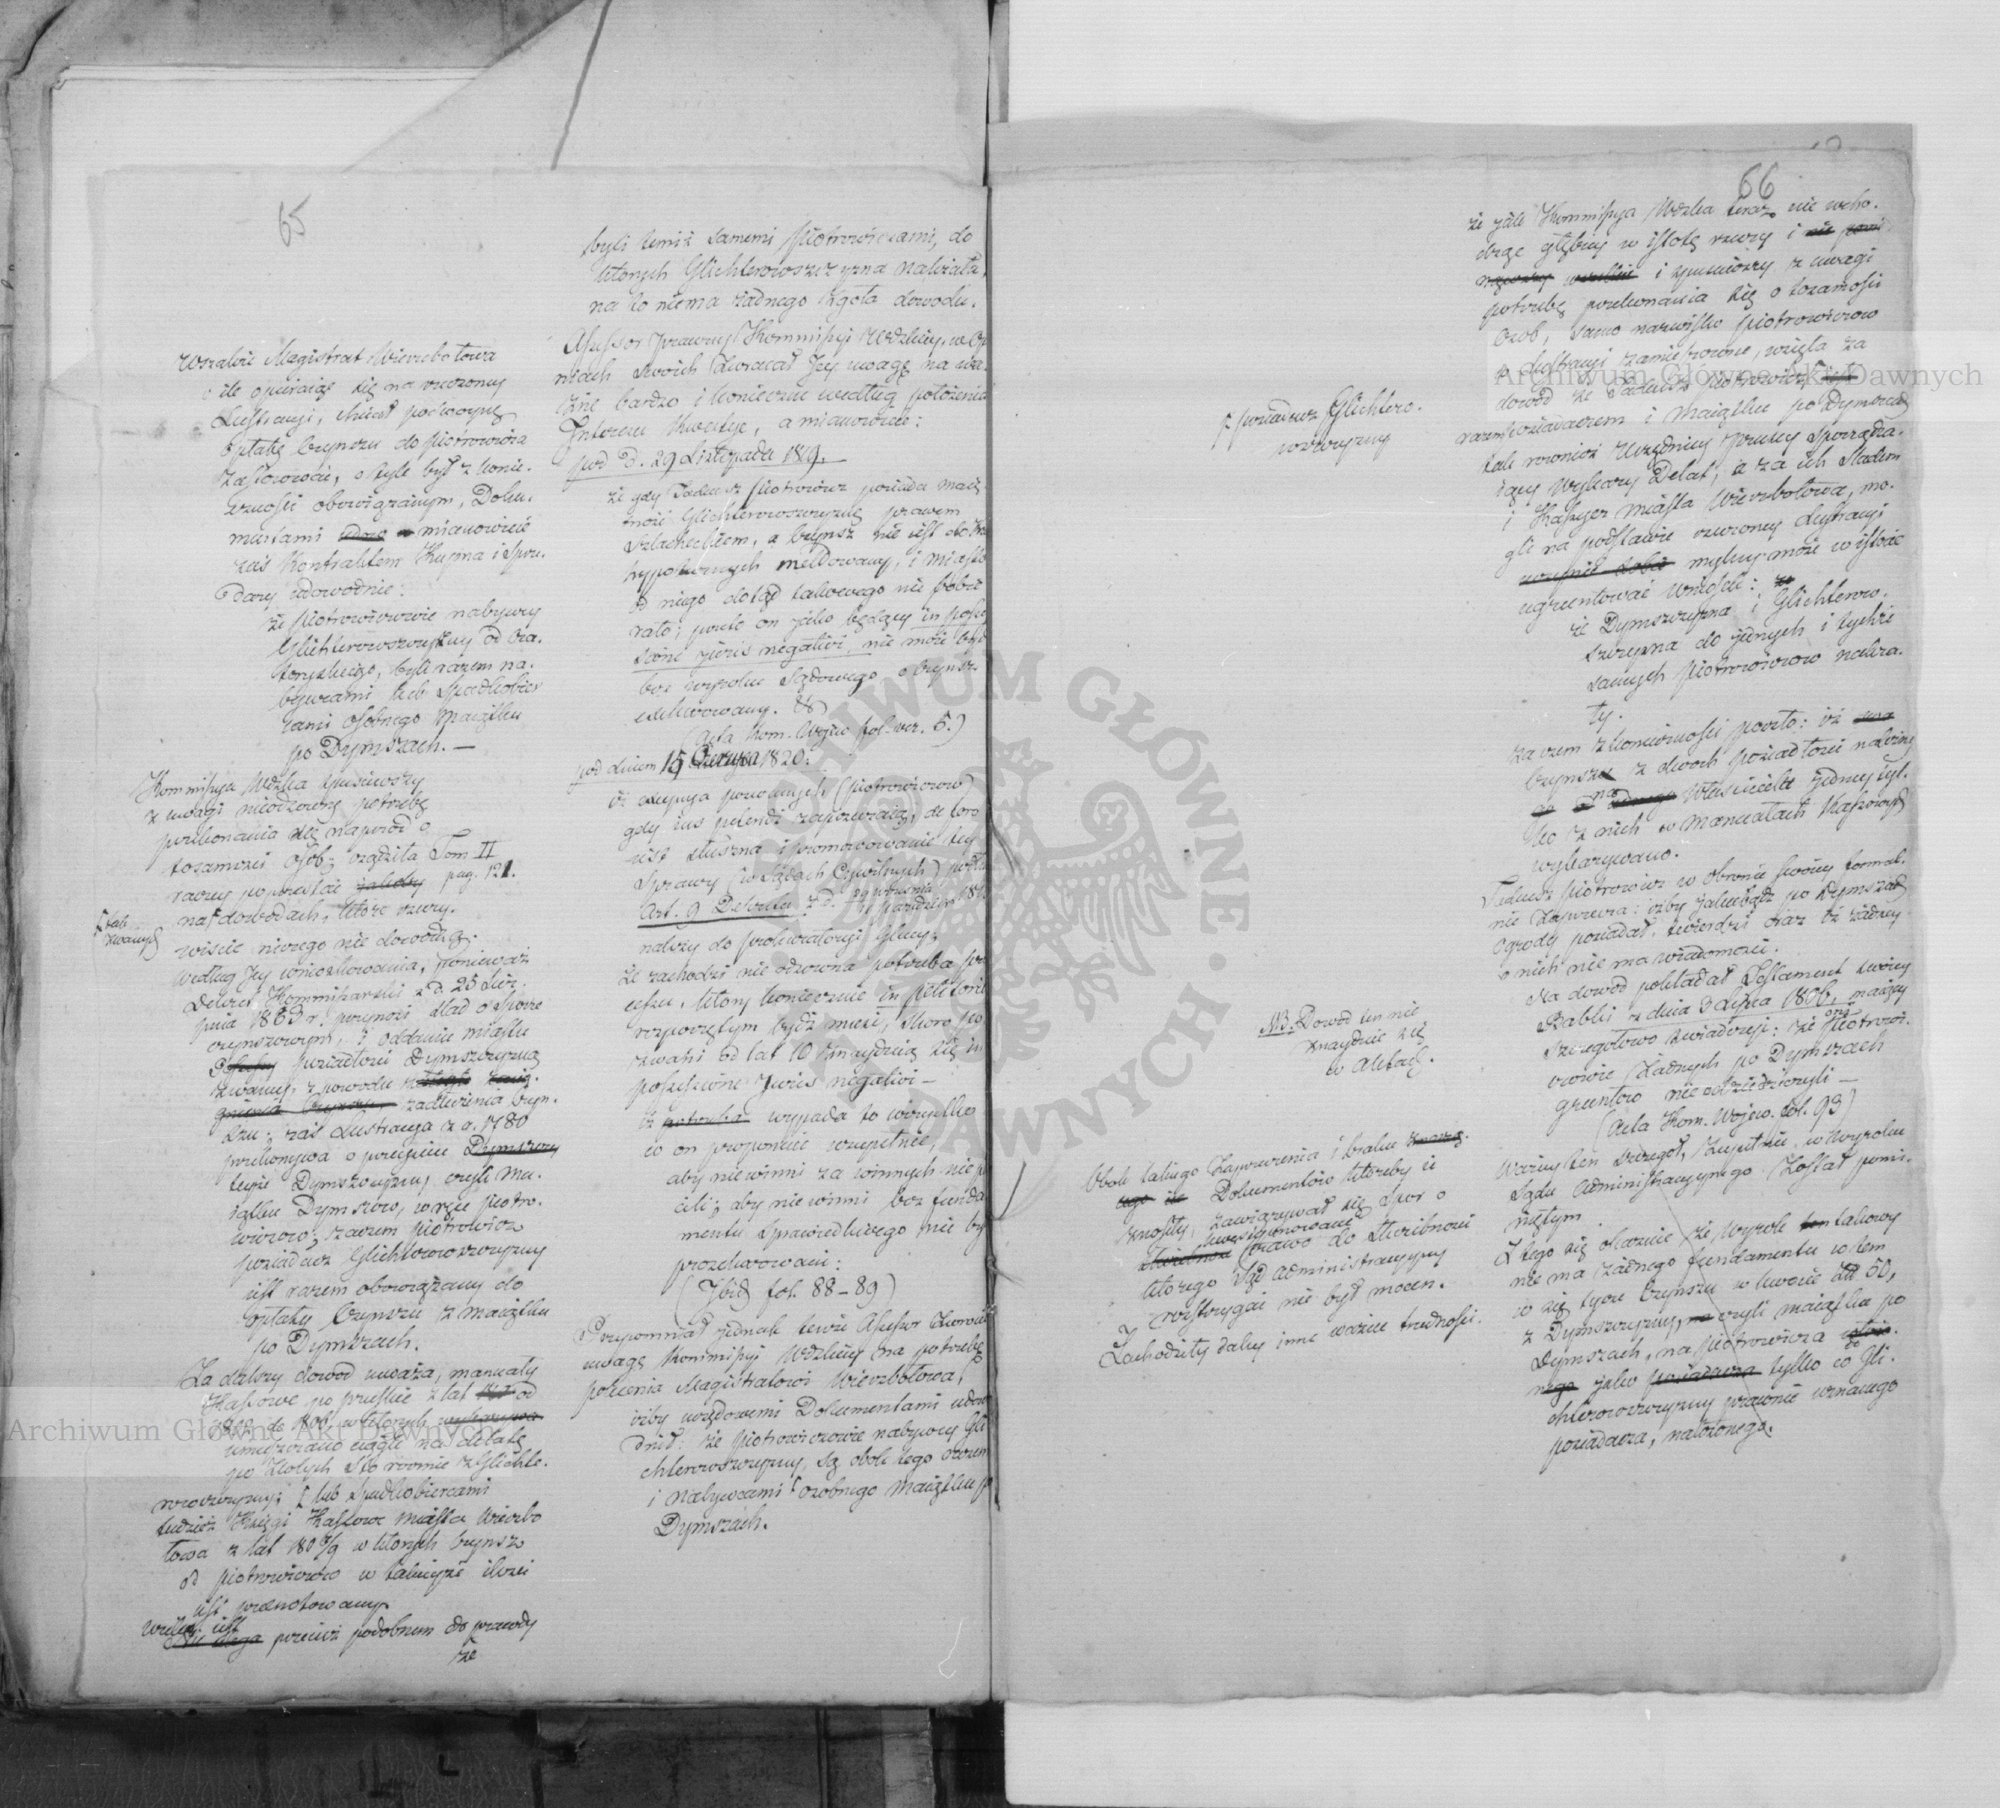 65
wszakże Magistrat Wierzbołowa
o ile opierając się na rzeczoney
Lustracyi, chciał podwoyną
opłatę Czynszu do Piotrowicza
zastosować, o tyle był z konie-
czności obowiązanym, Doku-
mentami mianowicie
zaś Kontraktem Kupna i Sprze-
daży udowodnić:
że Piotrowiczowie nabywcy
Glichterowszczyzny od Cza-
toryskiego, byli razem na-
bywcami lub Spadkobier-
cami osobnego Maiątku
po Dymszach. —
Kommissya Wdzka zpuściwszy
z uwagi nieodzowną potrzebę
przekonania się naprzód o
tożsamości osób; osądziła Tom II
raczey poprzestać pag. 121.
na dowodach, które rzeczy-
[tak
zwanych
wiście niczego nie dowodzą.
Według Jey wnioskowania, ponieważ
Dekret Kommissarski z d. 25 Sier-
pnia 1803 r. przynosi ślad o Sporze
czynszowym, i oddaniu miastu
posiadłości Dymszczyzną
zwaney, z powodu
zadłużenia Czyn-
szu; zaś Lustracya z r. 1780
przekonywa o przejściu
teyże Dymszczyzny, czyli Ma-
iątku Dymszow, w ręce Piotro-
wiczow; zatem Piotrowicz
posiadacz Glichterowszczyzny
iest razem obowiązany do
opłaty Czynszu z Maiątku
po Dymszach.
Za dalszy dowód uważa, manuały
Kassowe po pruskie z lat od
do 1806. w których
umieszczano ciągle na delatę
po złotych Sto rocznie z Glichte-
rowszczyzny; [lub Spadkobiercami
tudzież Księgi Kassowe miasta Wierzbo-
łowa z lat 180 8/9 w których czynsz
od Piotrowiczow w takieyże ilości
iest przenotowany.
Wielce iest
przecież podobnem do prawdy
że
byli temiż samemi Piotrowiczami, do
których Glichterowszczyzna należała,
na to niema żadnego zgoła dowodu.
Assessor Prawny Kommissyi Wdzkiey, w Opi-
niach swoich zwracał Jey uwagę na wa-
żne bardzo i konieczne według położenia
Interesu Kwestye, a mianowicie:
pod D. 29 Listopada 1819. —
że gdy Tadeusz Piotrowicz posiada maię-
tność Glichterowszczyznę prawem
Szlacheckiem, a czynsz nie iest do Xiąg
hypotecznych meldowany, i miasto
od niego dotąd takowego nie pobie-
rało; przeto on jako będący in posses-
sione juris negativi, nie może być
bez wyroku Sądowego o czynsz
exekwowany.
(Acta Kom. Wojew. fol. ver. 5.)
pod dniem 15 Czerwca 1820:
iż excypcya pozwanych (Piotrowiczow)
gdy ius petendi zaprzeczaią, de foro
iest słuszna i promowowanie tey
Sprawy (w Sądach Cywilnych) podług
Art. 9 Dekretu z d. 29 Września / Październ. 181
należy do prokuratoryi Glney;
że zachodzi nie odzowna potrzeba pro-
cesu, który koniecznie in petitorio
rozpoczętym bydź musi, skoro po-
zwani od lat 10 znayduią się in
possessione Juris negativi —
iż wypada to wszystko
co on proponuie uzupełnić,
aby niewinni za winnych nie pła-
cili; aby niewinni bez funda-
mentu sprawiedliwego nie by-
li prozekwowani:
(Ibid fol. 88-89)
Przypomniał jednak tenże Assessor zwrócić
uwagę Kommissyi Wdzkiey na potrzebę
polecenia Magistratowi Wierzbołowa,
iżby urzędowemi Dokumentami udowo-
dnił: że Piotrowiczowie nabywcy Gli-
chterowszczyzny, są obok tego razem
i nabywcami osobnego Maiątku po
Dymszach.
66
[posiadacz Glichtero-
wszczyzny
NB. Dowód ten nie
znayduie się
w Aktach.
Obok takiego zaprzeczenia i braku
Dokumentow któreby ie
znosiły, zawiązywał się spór o
kwestyonowane
prawo do skuibności
którego Sąd administracyyny
rozstrzygać nie był mocen.
Zachodziły daley inne ważne trudności.
że zaś Kommissya Wdzka teraz nie wcho-
dząc głębiey w istotę rzeczy i
i spuściwszy z uwagi
potrzebę przekonania się o tożsamości
osob, samo nazwisko Piotrowiczow
w Lustracyi zamieszczone, wzięła za
dowód że Tadeusz Piotrowicz iest
razem posiadaczem i maiątku po Dymszach
tak również Urzędnicy Pruscy Sporządza-
iący wykazy Delat, a za ich śladem
i Kassyer miasta Wierzbołowa, mo-
gli na podstawie rzeczoney Lustracyi
mylny może w istocie
ugruntować wniosek:
że Dymszczyzna i Glichterow-
szczyzna do jednych i tychże
samych Piotrowiczow należa-
ły.
zatem z konieczności poszło: iż
czynsze z dwóch posiadłości należny
na Właściciela jedney tyl-
ko z nich w manuałach Kassowych
wykazywano.
Tadeusz Piotrowicz w obronie swoiey formal-
nie zaprzecza: iżby jakiebądź po Dymszach
Ogrody posiadał, twierdzi oraz iż żadney
o nich nie ma wiadomości.
Na dowód pokładał Testament swoiey
Babki z dnia 3 Lipca 1806, maiący
szczegółowo zaświadczyć: że oni Piotrowi-
czowie żadnych po Dymszach
gruntow nie odziedziczyli —
(Acta Kom. Wojew. fol. 93)
Ważny ten szczegół, zupełnie w Wyroku
Sądu Administracyynego został pomi-
niętym.
Z tego się okazuie że Wyrok takowy
nie ma żadnego fundamentu w tem
co się tycze Czynszu w kwocie Zł 50,
z Dymszczyzny, czyli maiątku po
Dymszach, na Piotrowicza
jako tylko co do Gli-
chterowszczyzny prawnie uznanego
posiadacza, nałożonego.
Archiwum Główne Akt Dawnych
Archiwum Główne Akt Dawnych
ARCHIWUM GŁÓWNE AKT DAWNYCH